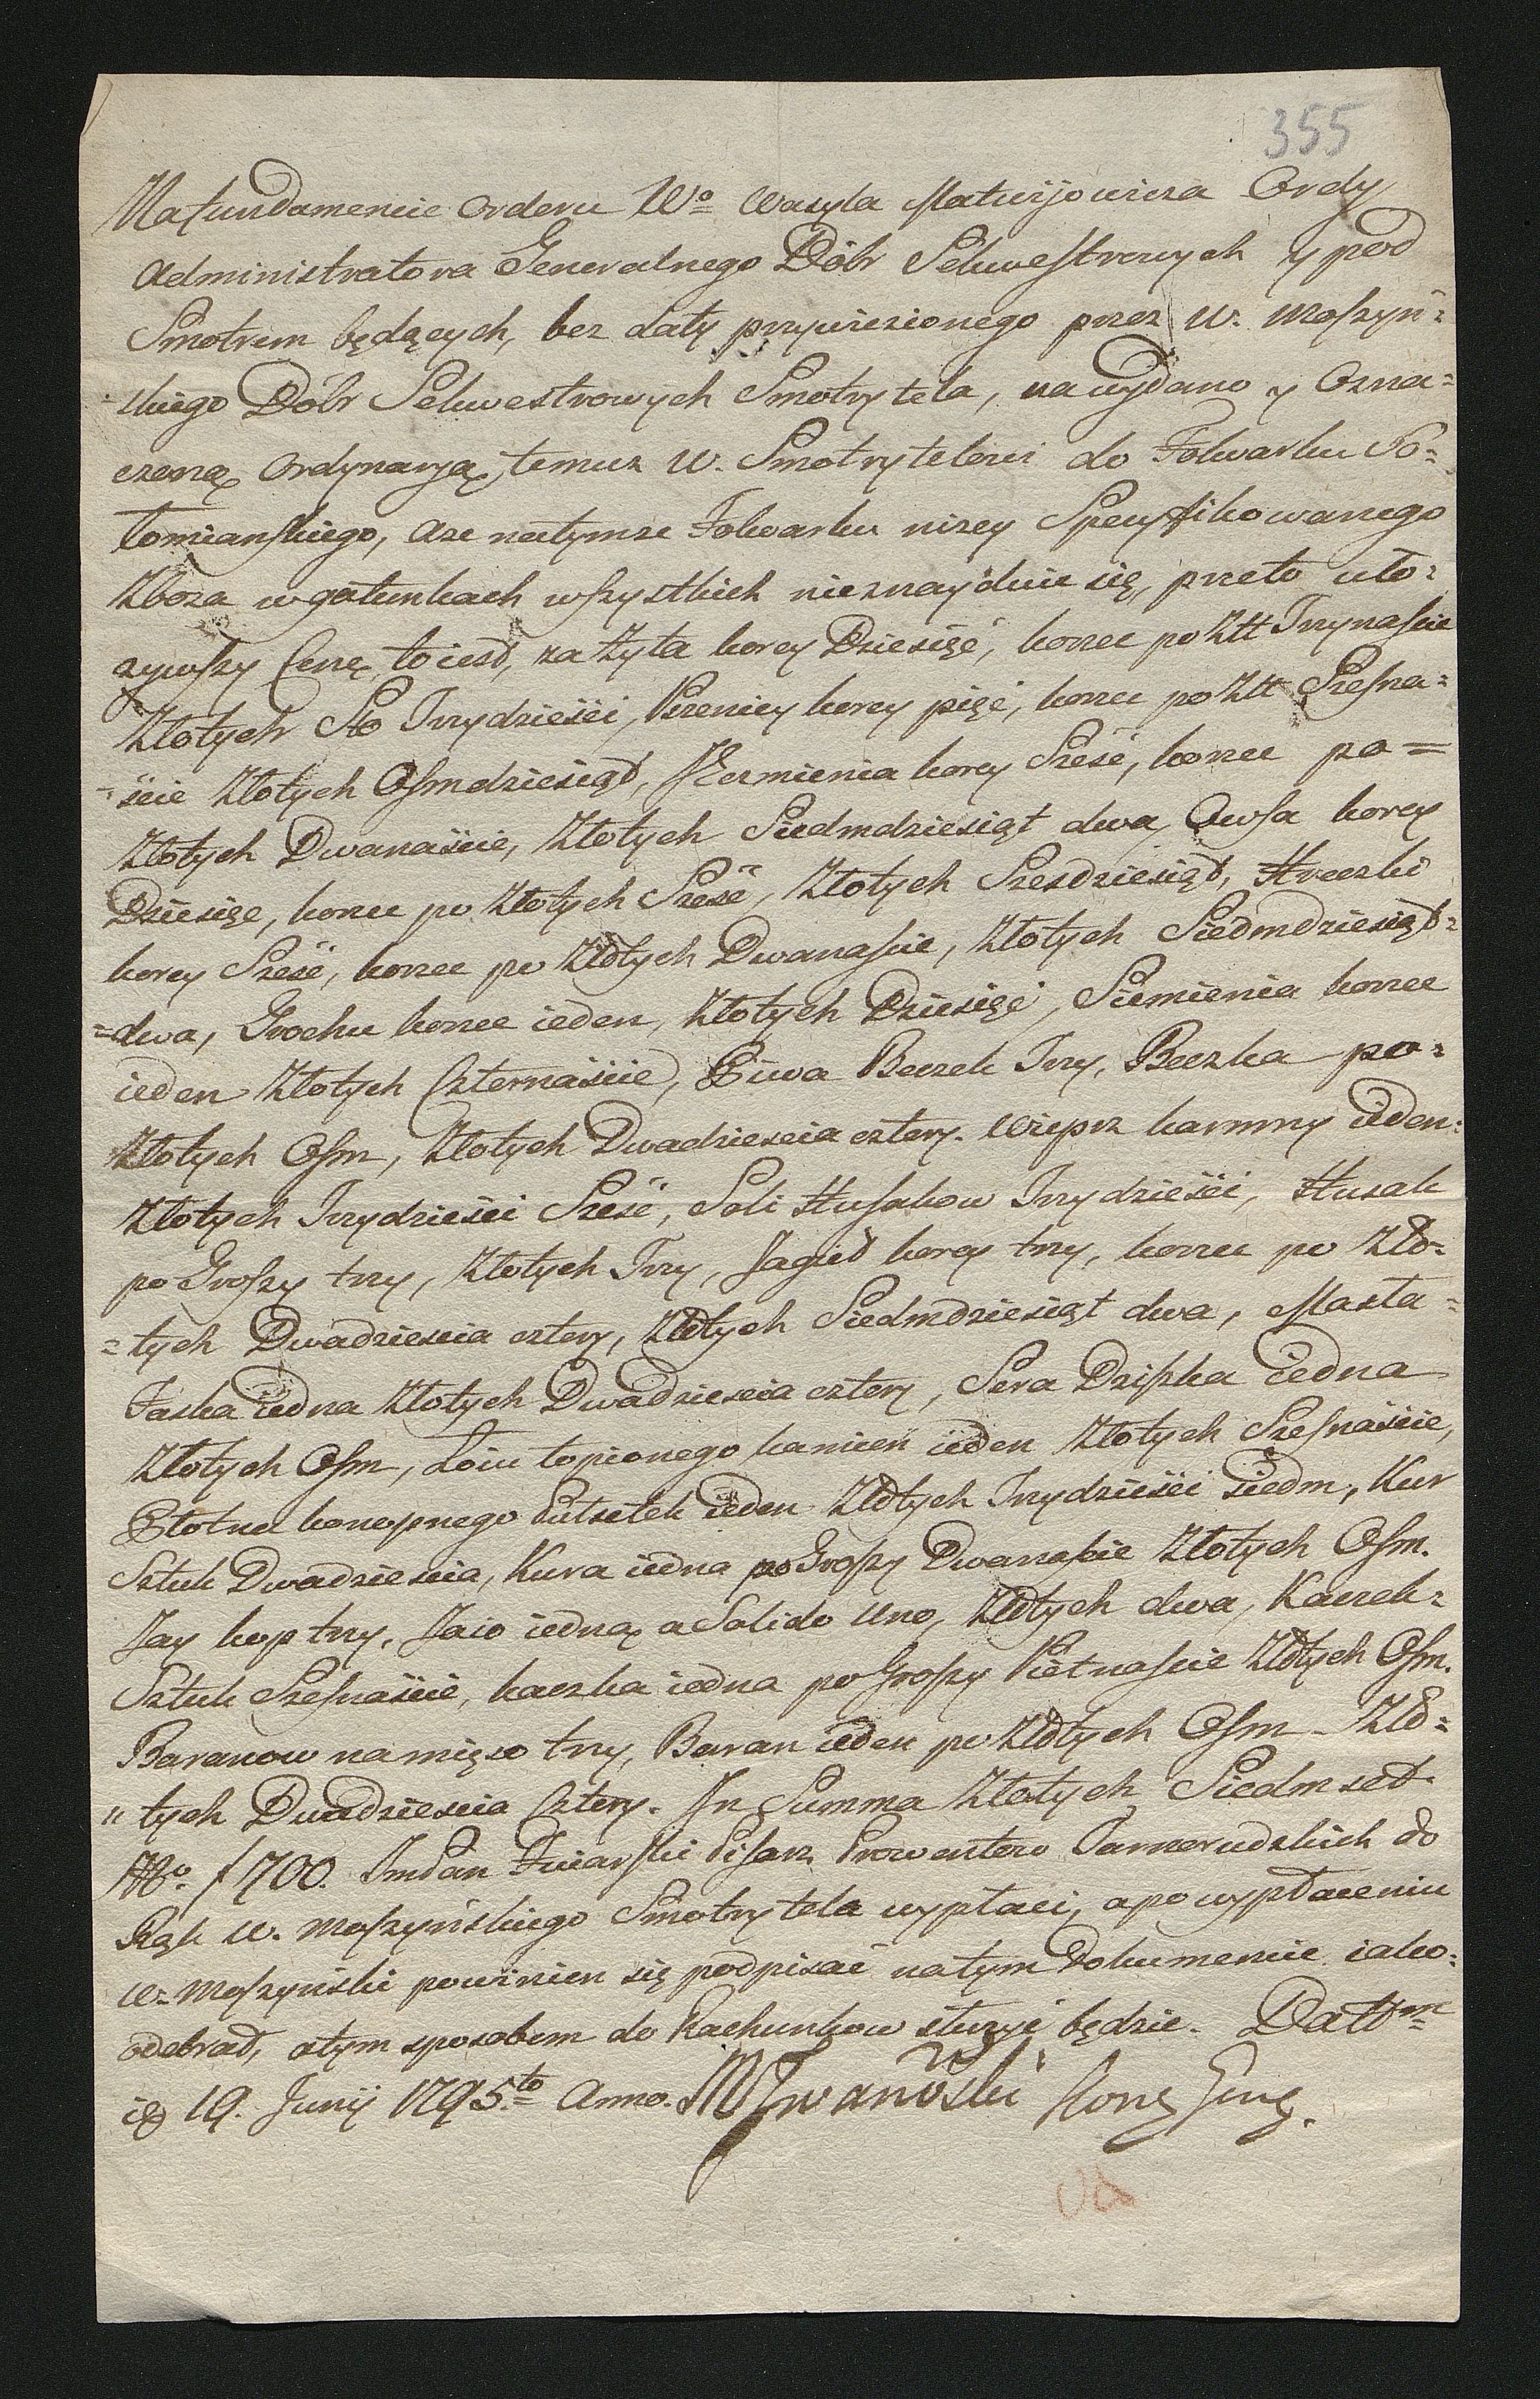 355
Na fundamencie Orderu Wo Wasyla Matwijowicza Ordy
Administratora Generalnego Dóbr Sekwestrowych y pod
Smotrem będących, bez daty przywiezionego przez W. Moszyń=
skiego Dóbr Sekwestrowych Smotrytela, na wydano y Ozna=
czoną Ordynaryą, temuż W. Smotrytelowi do Folwarku So=
łomianskiego, a że na tymże Folwarku niżey Specyfikowanego
Zboża w gatunkach wszystkich nieznayduie się, przeto uło=
żywszy Cenę, to iest, za Żyta korcy Dziesięć, korzec po Złł Trzynaście
Złotych Sto Trzydzieści, Pszenicy korcy pięć, korzec po Złł Szesna=
=ście Złotych Osmdziesiąt, Jęczmienia korcy Sześć, korzec po =
Złotych Dwanaście, Złotych Siedmdziesiąt dwa, Owsa korcy
Dziesięć, korzec po Złotych Sześć, Złotych Szesdziesiąt, Hreczki
korcy Sześć, korzec po Złotych Dwanaście, Złotych Siedmdziesiąt=
=dwa, Grochu korzec ieden, Złotych Dziesięć, Siemienia korzec
ieden Złotych Czternaście, Piwa Beczek Trzy, Beczka po=
Złotych Osm, Złotych Dwadziescia cztery. Wieprz karmny ieden=
Złotych Trzydzieści Sześć, Soli Husakow Trzydzieści, Husak
po Groszy trzy, Złotych Trzy, Jagieł korcy trzy, korzec po Zło=
=tych Dwadziescia cztery, Złotych Siedmdziesiąt dwa, Masła=
Faska iedna Złotych Dwadziescia cztery, Sera Dziszka iedna
Złotych Osm, Łoiu topionego kamień ieden Złotych Szesnaście,
Płotna konopnego Pułsetek ieden Złotych Trzydzieści siedm, Kur
Sztuk Dwadziescia, Kura iedna po Groszy Dwanaście Złotych Osm.
Jay kop trzy, Jaio iedną a Solido Uno, Złotych dwa, Kaczek=
Sztuk Szesnaście, kaczka iedna po Groszy Pietnaście Złotych Osm.
Baranow na mięso trzy, Baran ieden po Złotych Osm Zło=
"tych Dwadziescia Cztery. In Summa Złotych Siedmset
No f 700. Imśan Pisarz Prowentow Tarnorudzkich do
Rąk W. Moszyńskiego Smotrytela wypłaci, a po wypłaceniu
W. Moszyński powinien się podpisać na tym Dokumencie iako=
odebrał, a tym sposobem do Rachunkow służyć będzie. Dattm
19. Junij 1795.to Anno. MIwanowski